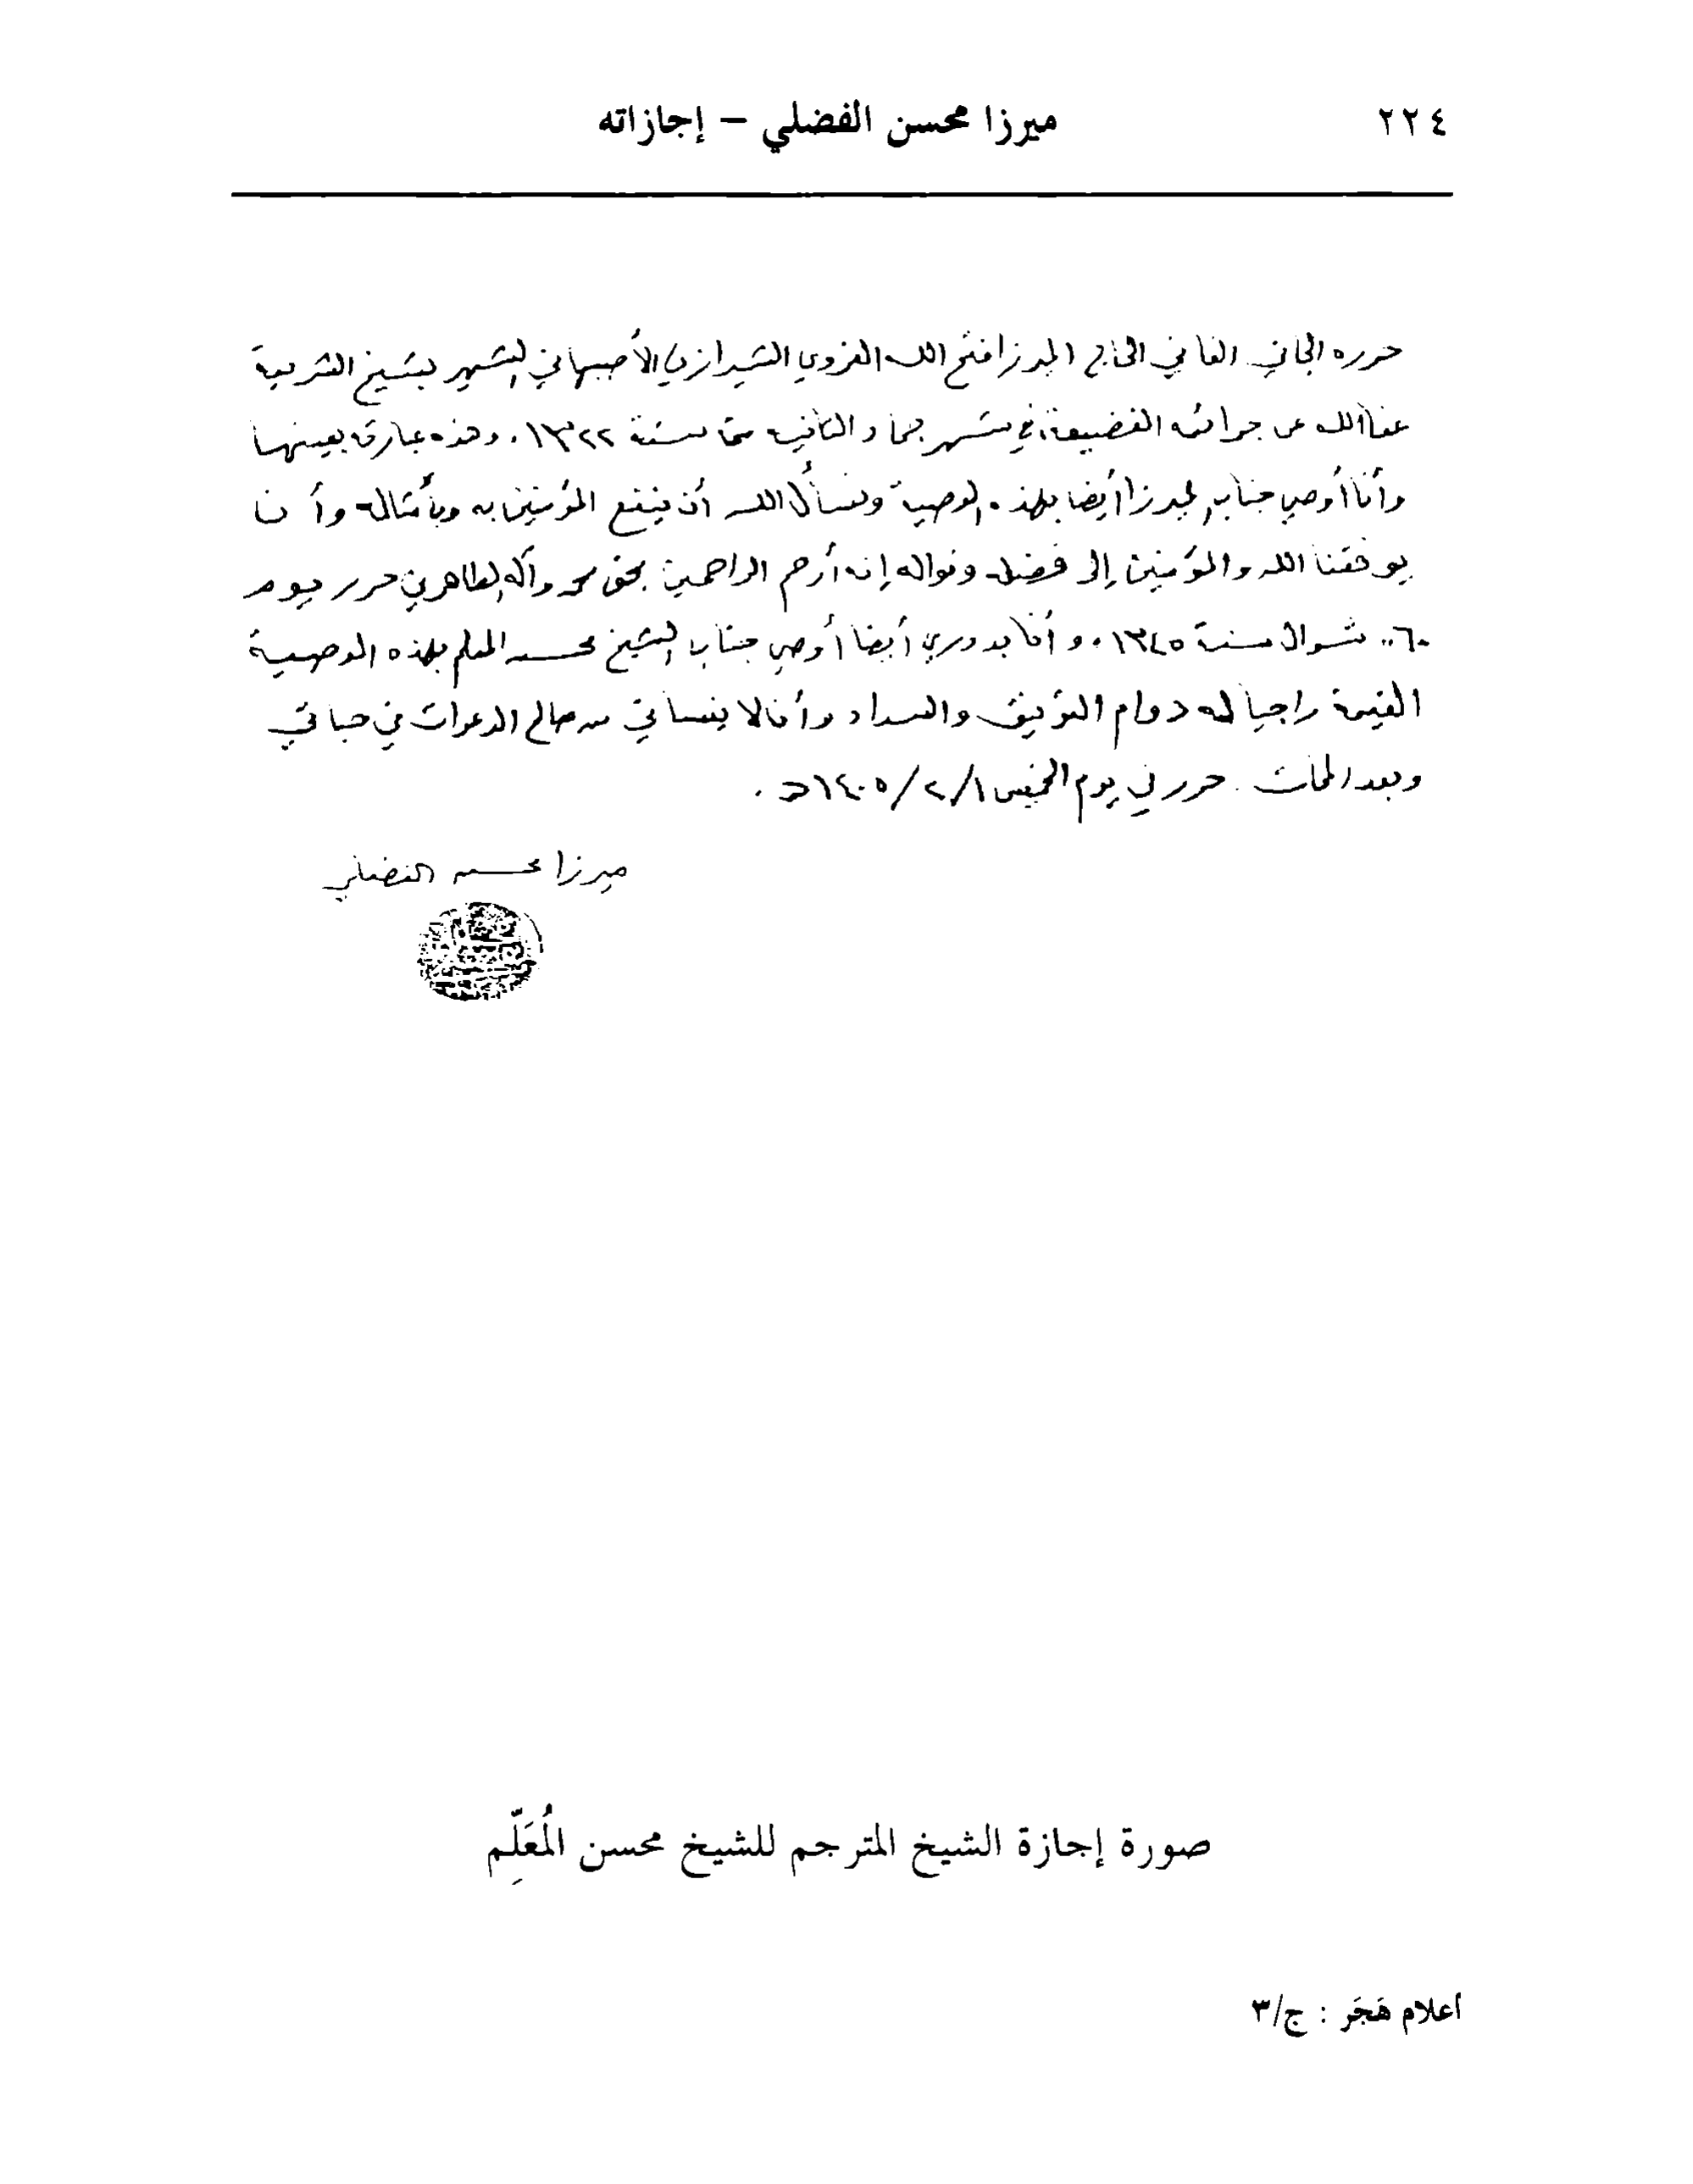 ٢٢٤
ميرزا محسن الفضلي – إجازاته
حرره الجاني الفاني الحاج الميرزا فتح الله الغروي الشيرازي الأصبهاني الشهير بشيخ الشريعة
عفا الله عن جرائمه الفضيعة، في شهر جماد الثانية من سنة ١٣٢٢. وهذه عبارته بعينها
وأنا أوصي جناب الميرزا أيضا بهذه الوصية ونسأل الله أن ينفع المؤمنين به وبأمثاله وأن
يوفقنا الله والمؤمنين إلى فضله ونواله إنه أرحم الراحمين بحق محمد وآله الطاهرين حرر يوم
٦ شوال سنة ١٣٤٥. وأنا بدوري أيضا أوصي جناب الشيخ محسن المعلم بهذه الوصية
القيمة راجيا له دوام التوفيق والسداد وأن لا ينساني من صالح الدعوات في حياتي
وبعد الممات. حرر في يوم الخميس ١/٢/١٤٠٥ه.
ميرزا محسن الفضلي
صورة إجازة الشيخ المترجم للشيخ محسن المُعَلِّم
أعلام هَجَر : ج/٣